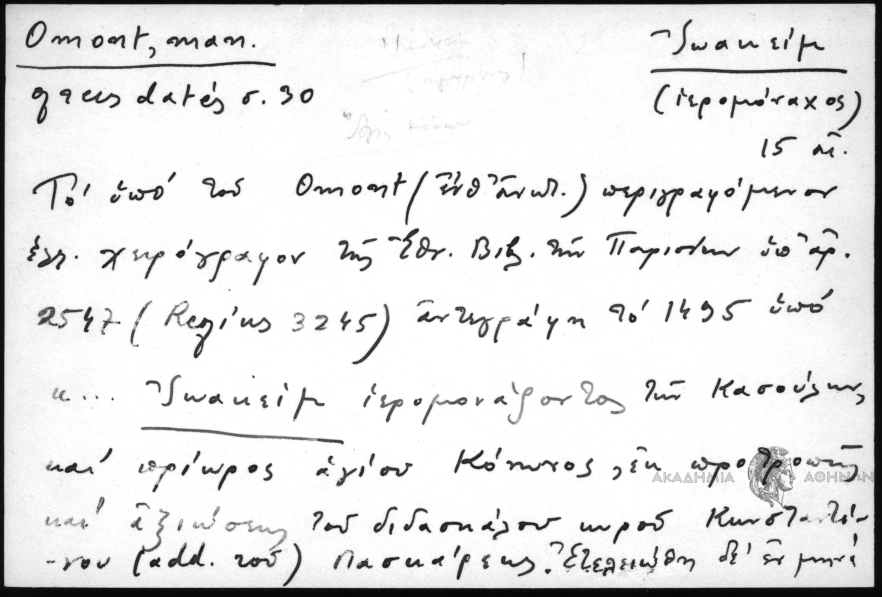 Omont, man.
grecs datés σ. 30
Ἰωακείμ
(ἱερομόναχος)
15 αἰ.
Τό ὑπό τοῦ Omont (ἔνθ' ἀνωτ.) περιγραφόμενον
ἑλλ. χειρόγραφον τῆς Ἐθν. Βιβλ. τῶν Παρισίων ὑπ' ἀρ.
2547 (Regius 3245) ἀντεγράφη τό 1495 ὑπό
«... Ἰωακείμ ἱερομονάζοντος τῶν Κασούλων,
καί πρίωρος ἁγίου Κόνωνος, ἐκ προτροπῆς
καί ἀξιώσεως τοῦ διδασκάλου κυροῦ Κωνσταντί-
-νου (add. τοῦ) Πασκάρεως. Ἐτελειώθη δέ ἐν μηνί
ΑΚΑΔΗΜΙΑ ΑΘΗΝΩΝ